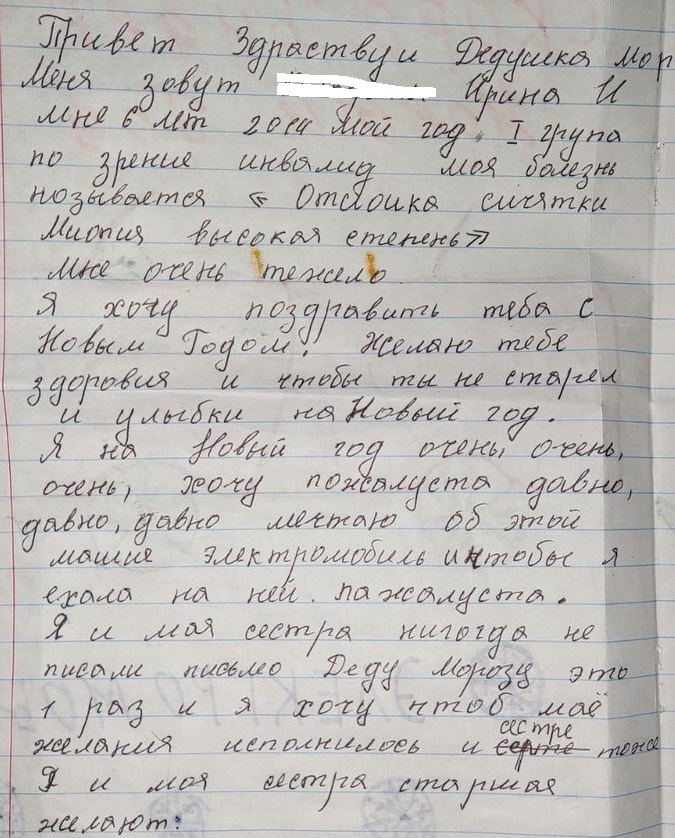 Привет Здраствуи Дедушка Мор
Меня зовут Ирина И
мне 6 лет 2014 мой год. I група
по зрение инвалид моя болезнь
нозывается « Отслоика сичятки
Миопия высокая степень»
Мне очень тежело
Я хочу поздравить тебя с
Новым Годом. Желаю тебе
здоровия и чтобы ты не старел
и улыбки на Новый год.
Я на Новый год очень, очень,
очень, хочу пожалуста давно,
давно, давно мечтаю об этой
машие электромобиль и чтобы я
ехала на ней. пажалуста.
Я и моя сестра нигогда не
писали письмо Деду Морозу это
1 раз и я хочу чтоб маё
сестре
желания исполнилось и тоже
Я и моя сестра старшая
желают: